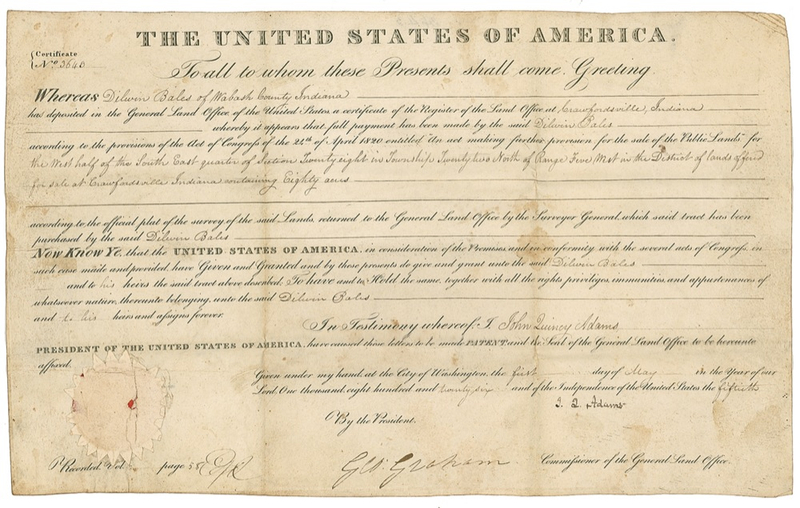 THE UNITED STATES OF AMERICA.
Certificate
No. 3640
To all to whom these Presents shall come, Greeting
Whereas Dilwin Bales of Wabash County Indiana
has deposited in the General Land Office of the United States, a certificate of the Register of the Land Office at Crawfordsville, Indiana
whereby it appears that full payment has been made by the said Dilwin Bales
according to the provisions of the Act of Congress of the 24th of April 1820 entitled "An act making further provision for the sale of the Public Lands" for
the West half of the South East quarter of Section Twenty eight in Township Twenty two North of Range Five West in the District of lands offered
for sale at Crawfordsville Indiana containing Eighty acres
according to the official plat of the survey of the said Lands, returned to the General Land Office by the Surveyor General, which said tract has been
purchased by the said Dilwin Bales
Now Know Ye, that the UNITED STATES OF AMERICA, in consideration of the Premises, and in conformity with the several acts of Congress, in
such case made and provided, have Given and Granted and by these presents do give and grant unto the said Dilwin Bales
and to his heirs the said tract above described; To have and to Hold the same, together with all the rights privileges, immunities, and appurtenances of
whatsoever nature, thereunto belonging, unto the said Dilwin Bales
and to his heirs and assigns forever.
In Testimony whereof, I John Quincy Adams
PRESIDENT OF THE UNITED STATES OF AMERICA, have caused these letters to be made PATENT, and the Seal of the General Land Office to be hereunto
affixed.
Given under my hand, at the City of Washington, the first day of May in the Year of our
Lord, One thousand, eight hundred and twenty six and of the Independence of the United States the fiftieth
J. Q. Adams
By the President.
Recorded, Vol. page 58
G.W. Graham Commissioner of the General Land Office.